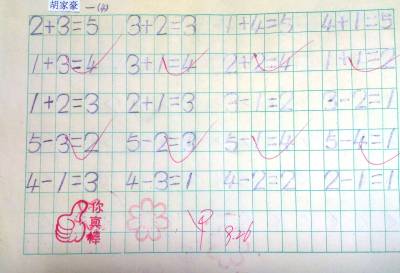 胡家豪 一(4)
2+3=5 3+2=3 1+4=5 4+1=5
1+3=4 3+1=4 2+2=4 1+1=2
1+2=3 2+1=3 3-1=2 3-2=1
5-3=2 5-2=3 5-1=4 5-4=1
4-1=3 4-3=1 4-2=2 2-1=1
你真棒